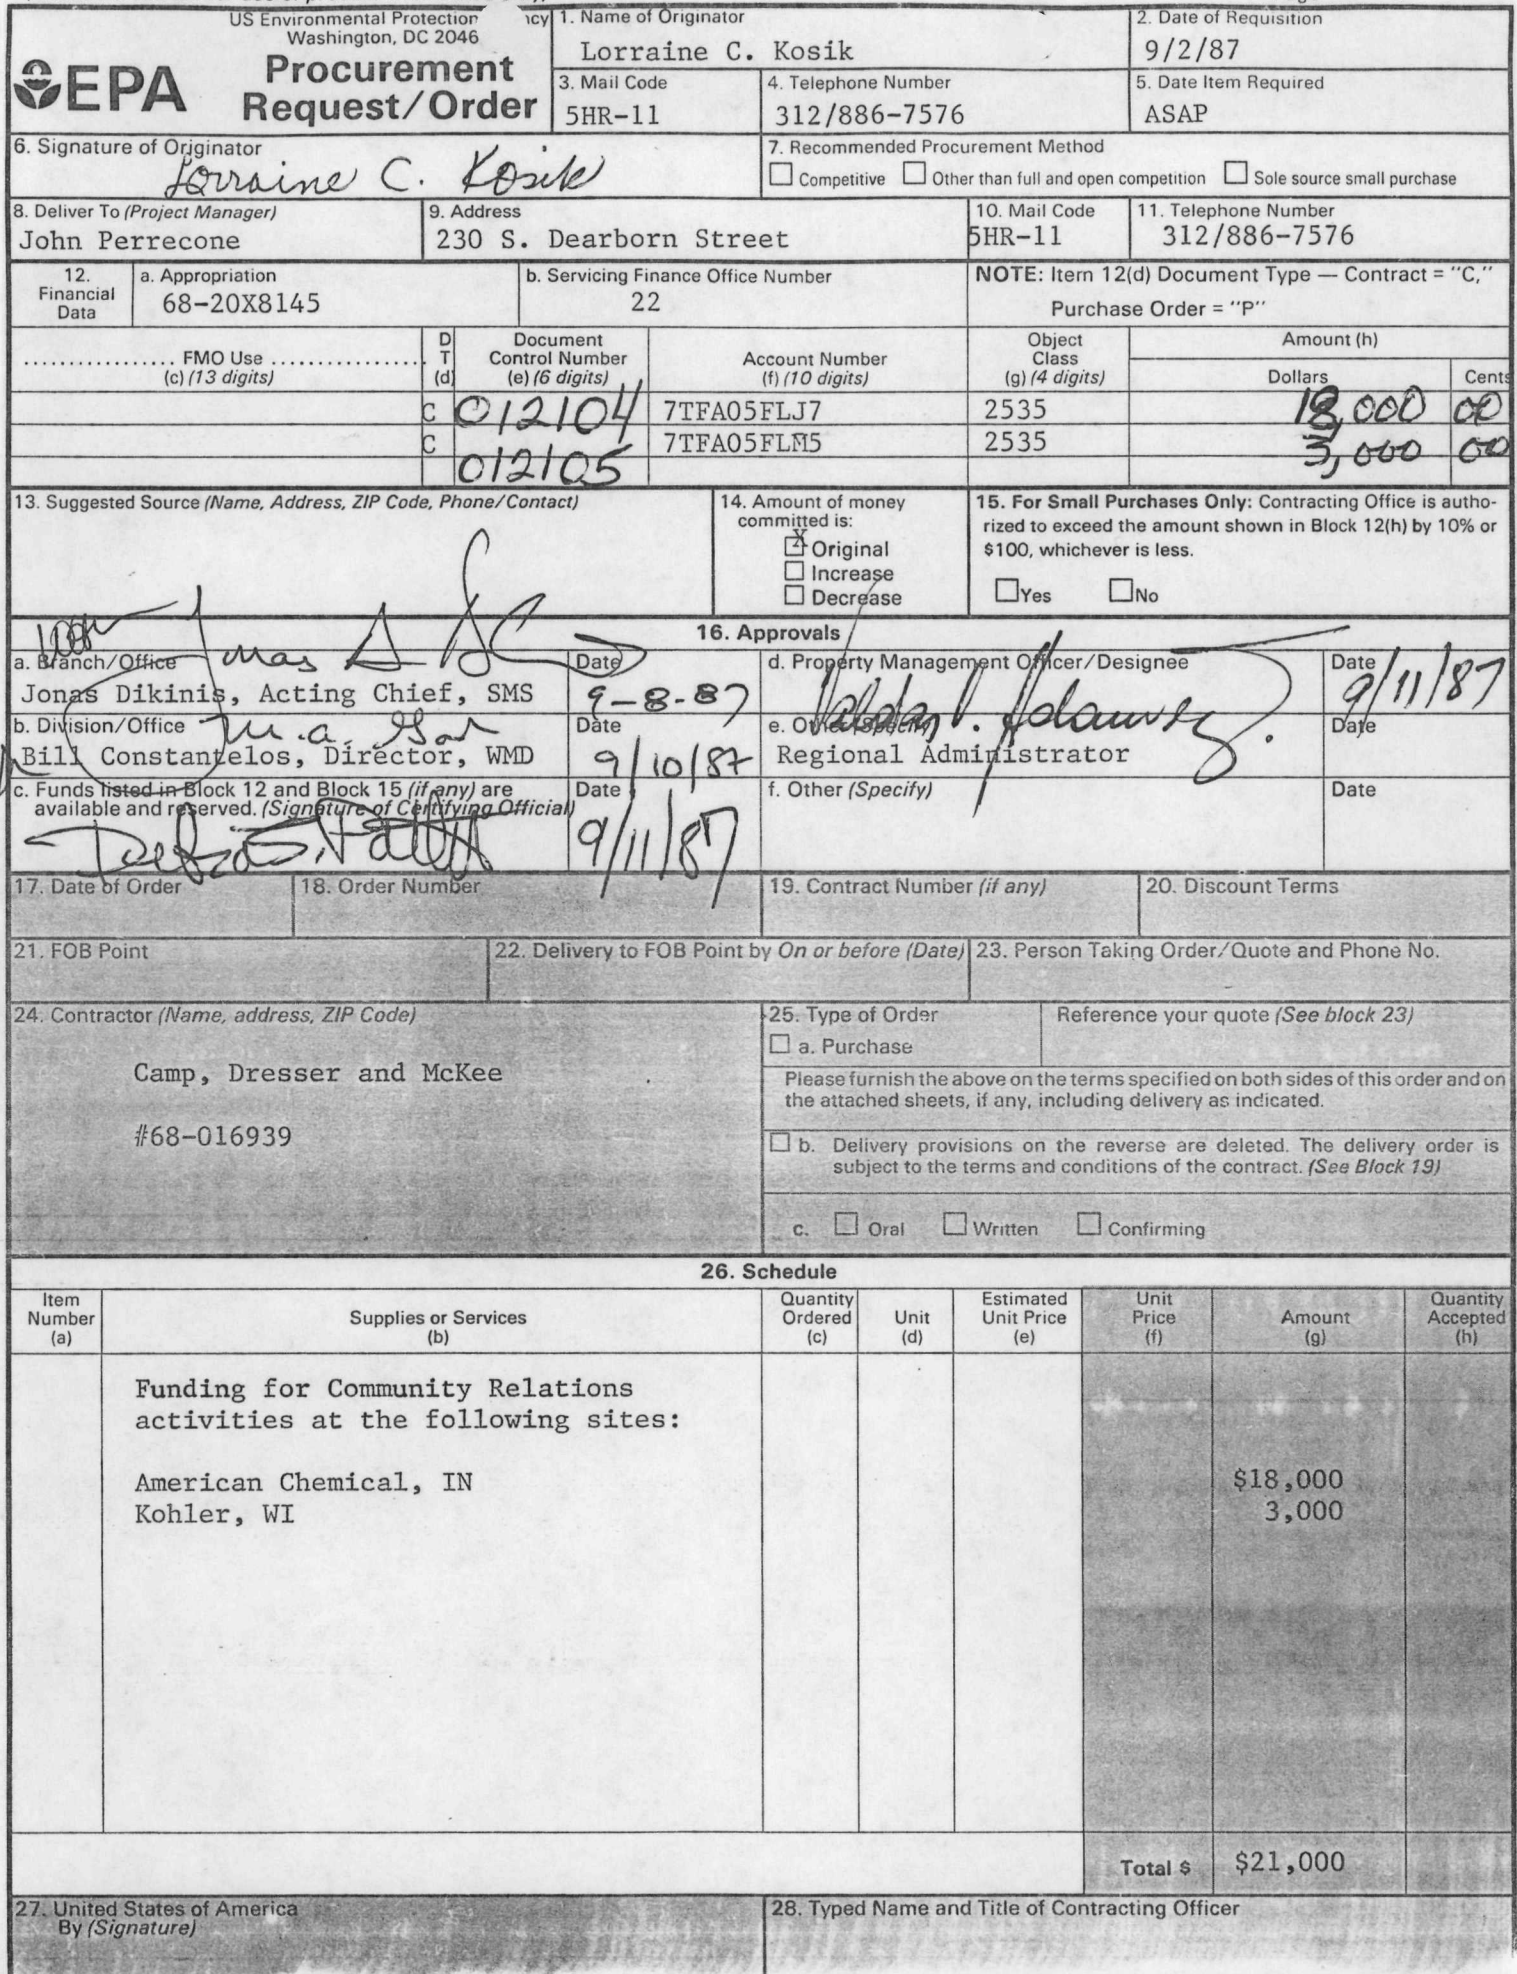 US Environmental Protection ncy
Washington, DC 2046
EPA
Procurement
Request/Order
1. Name of Originator
Lorraine C. Kosik
2. Date of Requisition
9/2/87
3. Mail Code
5HR-11
4. Telephone Number
312/886-7576
5. Date Item Required
ASAP
6. Signature of Originator
Lorraine C. Kosik
7. Recommended Procurement Method
Competitive Other than full and open competition Sole source small purchase
8. Deliver To (Project Manager)
John Perrecone
9. Address
230 S. Dearborn Street
10. Mail Code
5HR-11
11. Telephone Number
312/886-7576
12.
Financial
Data
a. Appropriation
68-20X8145
b. Servicing Finance Office Number
22
NOTE: Item 12(d) Document Type — Contract = "C,"
Purchase Order = "P"
................. FMO Use .................
(c) (13 digits)
D
T
(d)
Document
Control Number
(e) (6 digits)
Account Number
(f) (10 digits)
Object
Class
(g) (4 digits)
Amount (h)
Dollars Cents
C 012104 7TFA05FLJ7 2535 18,000 00
C 012105 7TFA05FLM5 2535 3,000 00
13. Suggested Source (Name, Address, ZIP Code, Phone/Contact)
14. Amount of money
committed is:
X Original
Increase
Decrease
15. For Small Purchases Only: Contracting Office is autho-
rized to exceed the amount shown in Block 12(h) by 10% or
$100, whichever is less.
Yes No
16. Approvals
a. Branch/Office
Jonas Dikinis, Acting Chief, SMS
Date
9-8-87
d. Property Management Officer/Designee
Date
9/11/87
b. Division/Office
Bill Constantelos, Director, WMD
Date
9/10/87
e. Other (Specify)
Regional Administrator
Date
c. Funds listed in Block 12 and Block 15 (if any) are
available and reserved. (Signature of Certifying Official)
Date
9/11/87
f. Other (Specify)
Date
17. Date of Order
18. Order Number
19. Contract Number (if any)
20. Discount Terms
21. FOB Point
22. Delivery to FOB Point by On or before (Date)
23. Person Taking Order/Quote and Phone No.
24. Contractor (Name, address, ZIP Code)
Camp, Dresser and McKee
#68-016939
25. Type of Order
a. Purchase
Reference your quote (See block 23)
Please furnish the above on the terms specified on both sides of this order and on
the attached sheets, if any, including delivery as indicated.
b. Delivery provisions on the reverse are deleted. The delivery order is
subject to the terms and conditions of the contract. (See Block 19)
c. Oral Written Confirming
26. Schedule
Item
Number
(a)
Supplies or Services
(b)
Quantity
Ordered
(c)
Unit
(d)
Estimated
Unit Price
(e)
Unit
Price
(f)
Amount
(g)
Quantity
Accepted
(h)
Funding for Community Relations
activities at the following sites:
American Chemical, IN $18,000
Kohler, WI 3,000
Total $ $21,000
27. United States of America
By (Signature)
28. Typed Name and Title of Contracting Officer